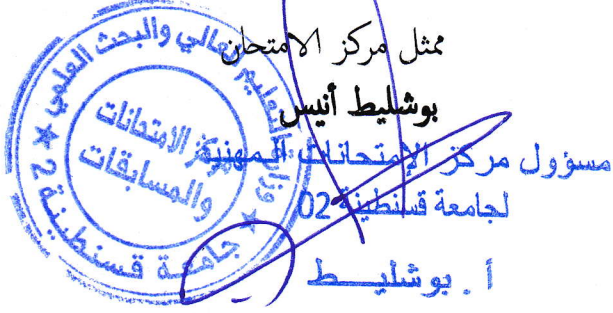 ممثل مركز الامتحان
بوشليط أنيس
مسؤول مركز الإمتحانات المهنية
لجامعة قسنطينة 02
أ . بوشليــط
وزارة التعليم العالي والبحث العلمي
★ جامعة قسنطينة 2 ★
مركز الامتحانات
والمسابقات